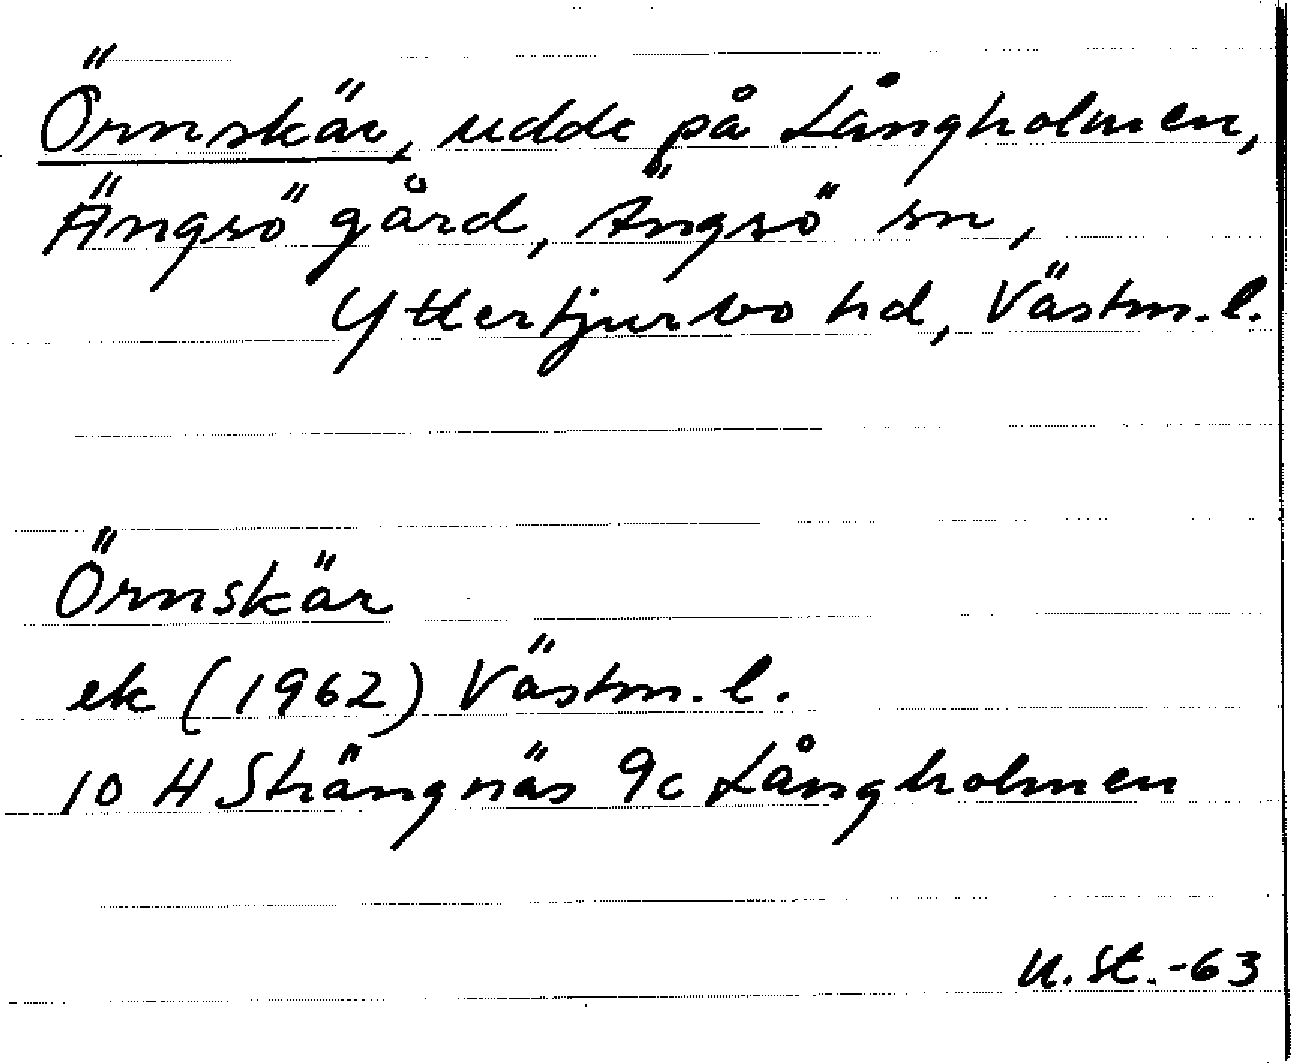 Örnskär, udde på Långholmen,
Ängsö gård, Ängsö sn,
Yttertjurbo hd, Västm. l.
Örnskär
ek (1962) Västm. l.
10 H Strängnäs 9c Långholmen
U. St. -63